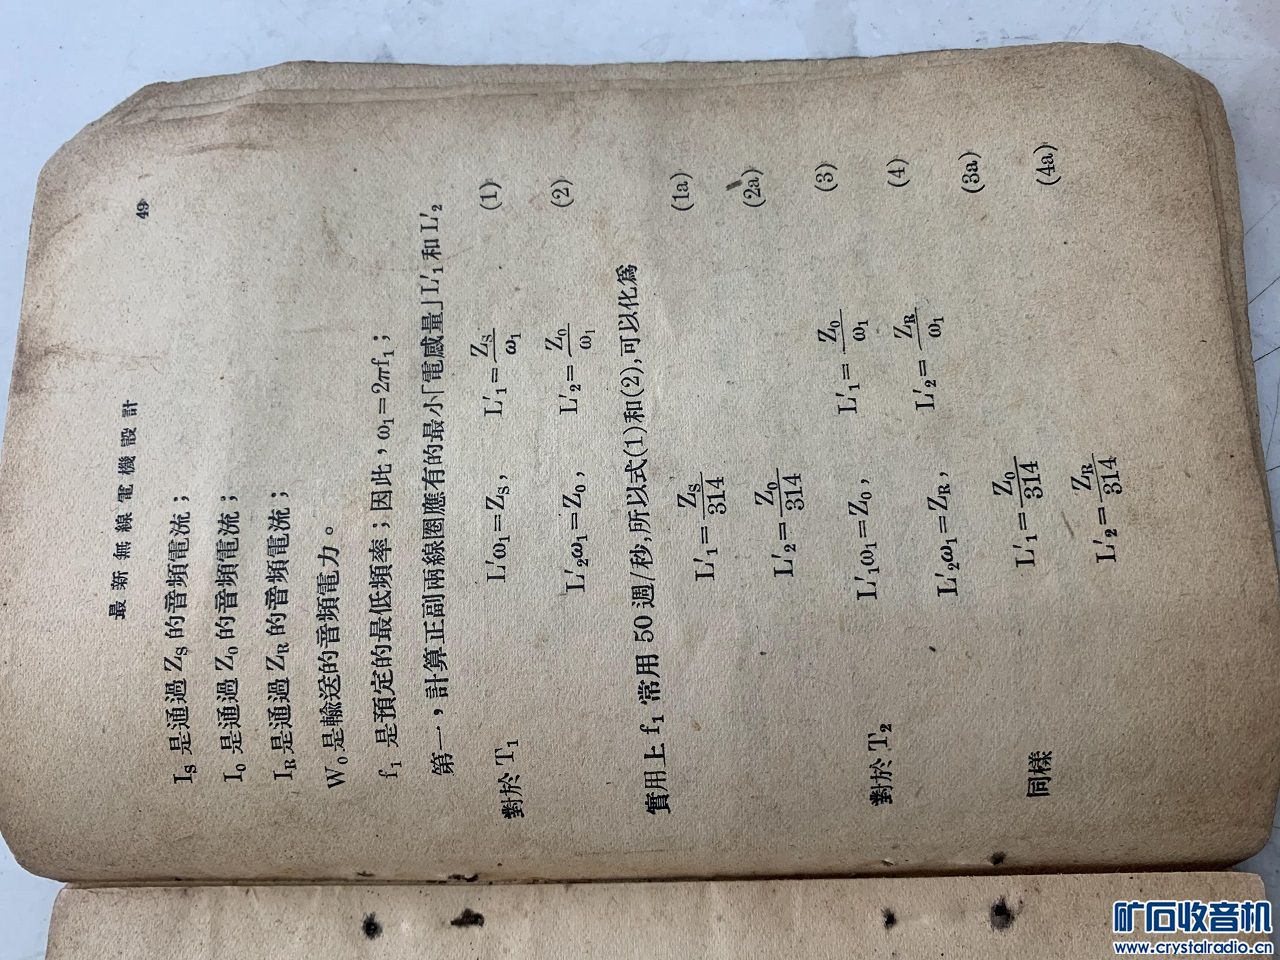 最新無線電機設計 49
I_S 是通過 Z_S 的音頻電流；
I_0 是通過 Z_0 的音頻電流；
I_R 是通過 Z_R 的音頻電流；
W_0 是輸送的音頻電力。
f_1 是預定的最低頻率；因此，ω_1=2πf_1；
第一，計算正副兩線圈應有的最小「電感量」L'_1 和 L'_2
對於 T_1 L'ω_1=Z_S， L'_1=Z_S/ω_1 (1)
L'_2ω_1=Z_0， L'_2=Z_0/ω_1 (2)
實用上 f_1 常用 50 週/秒,所以式(1)和(2),可以化爲
L'_1=Z_S/314 (1a)
L'_2=Z_0/314 (2a)
對於 T_2 L'_1ω_1=Z_0， L'_1=Z_0/ω_1 (3)
L'_2ω_1=Z_R， L'_2=Z_R/ω_1 (4)
同樣 L'_1=Z_0/314 (3a)
L'_2=Z_R/314 (4a)
矿石收音机
www.crystalradio.cn